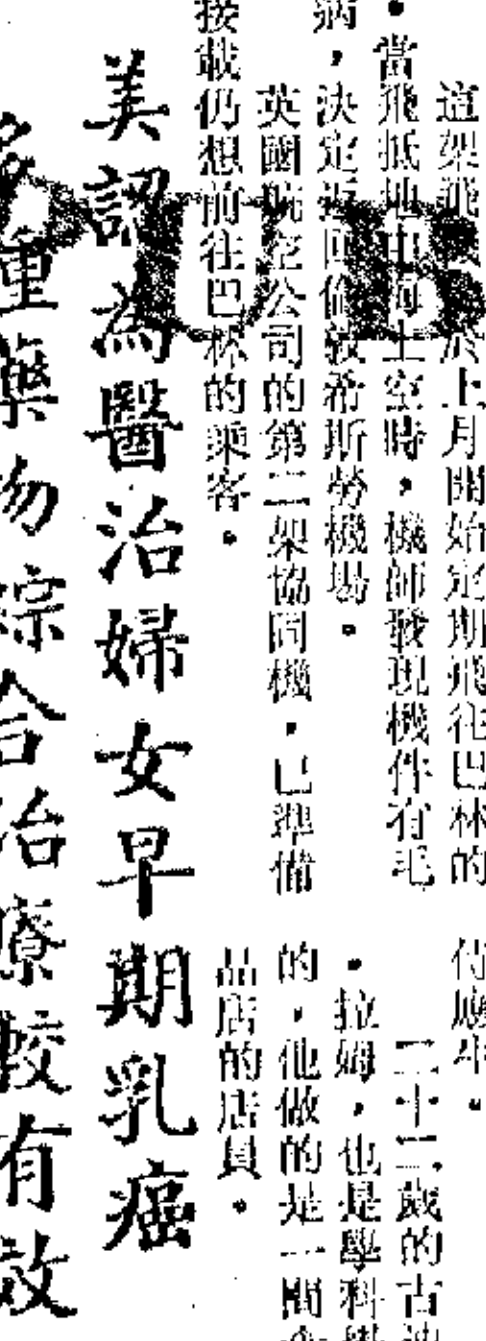 這架飛機於上月開始定期飛往巴林的
，當飛抵地中海上空時，機師發現機件有毛
病，決定返回倫敦希斯勞機場。
英國航空公司的第二架協同機，已準備
接載仍想前往巴林的乘客。
侍應生。
二十二歲的古
，拉姆，也是學科
的，他做的是一間
品店的店員。
美認為醫治婦女早期乳癌
多重藥物綜合治療較有效